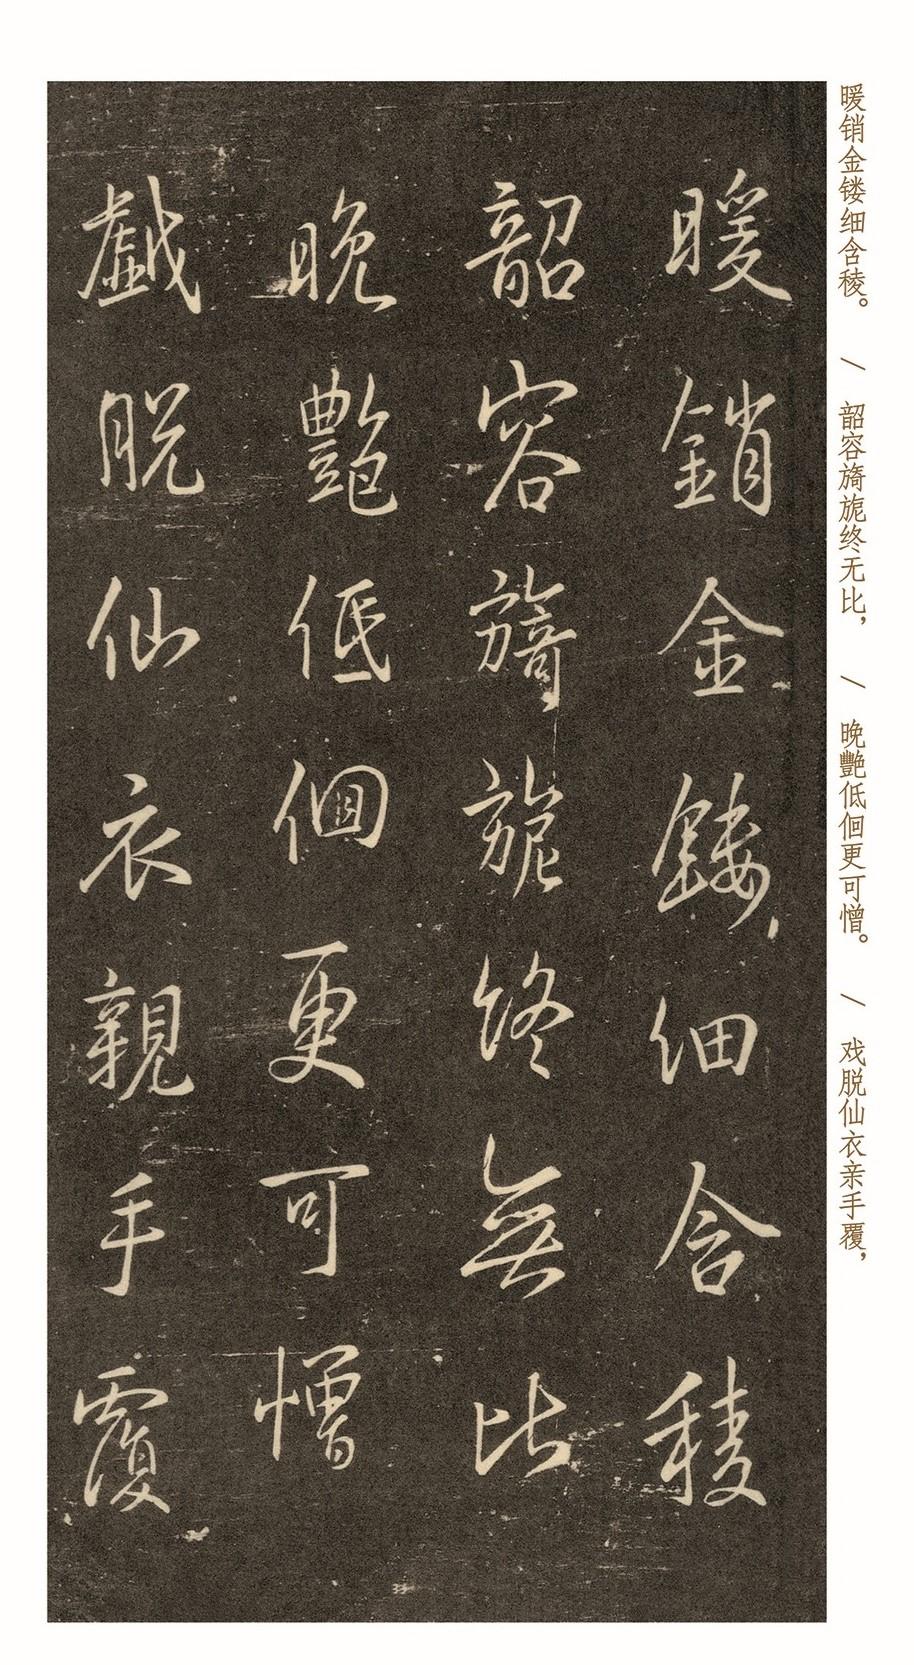 暖销金镂细含稜。 / 韶容旖旎终无比, / 晚艷低佪更可憎。 / 戏脱仙衣亲手覆,
暖銷金鏤細含稜
韶容旖旎终無比
晚艷低佪更可憎
戲脱仙衣親手覆